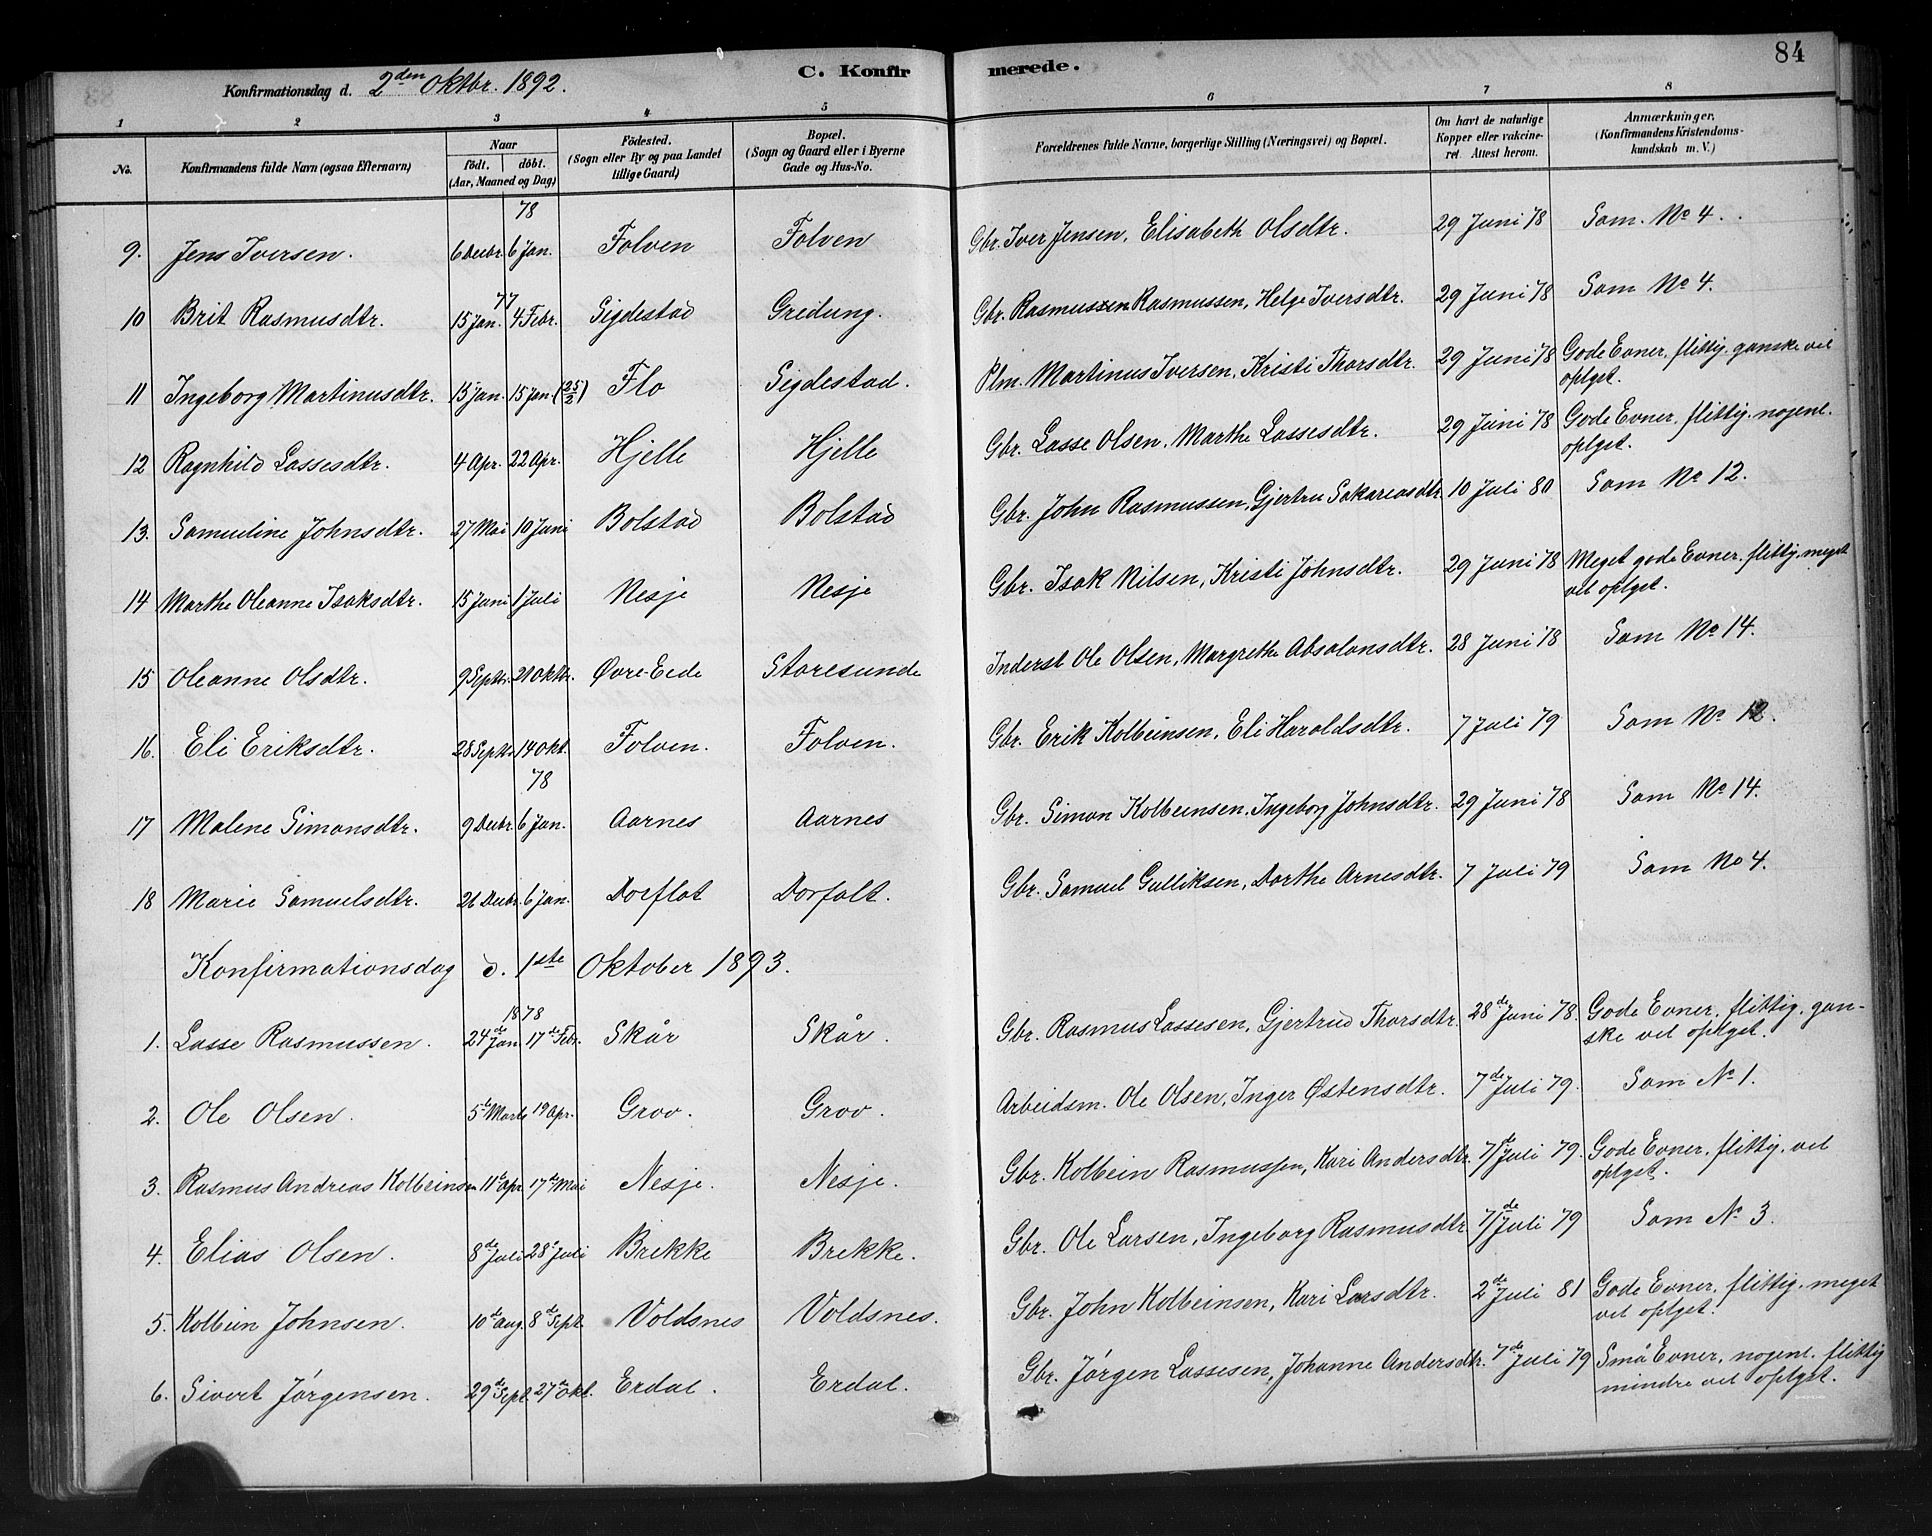 84
Konfirmationsdag d. 2den Oktbr. 1892.
C. Konfirmerede.
1 2 3 4 5 6 7 8
No. Konfirmandens fulde Navn (ogsaa Efternavn) Naar født. døbt. (Aar, Maaned og Dag) Födested. (Sogn eller By og paa Landet tillige Gaard) Bopæl. (Sogn og Gaard eller i Byerne Gade og Hus-No. Forældrenes fulde Navne, borgerlige Stilling (Næringsvei) og Bopæl. Om havt de naturlige Kopper eller vakcineret. Attest herom. Anmærkninger. (Konfirmandens Kristendomskundskab m. V.)
78
9. Jens Iversen. 6 Decbr. 6 Jan. Folven Folven Gbr. Iver Jensen, Elisabeth Olsdtr. 29 Juni 78 Som No 4.
77
10 Brit Rasmusdtr. 15 Jan. 4 Febr. Sigdestad Greidung. Gbr. Rasmus Rasmussen, Helge Iversdtr. 29 Juni 78 Som No 4.
11 Ingeborg Martinusdtr. 15 Jan. 15 Jan. (25/2) Flo Sigdestad. Plm. Martinus Iversen, Kristi Thorsdtr. 29 Juni 78 Gode Evner, flittig, ganske vel
oplyst.
12 Ragnhild Lassesdtr. 4 Apr. 22 Apr. Hjelle Hjelle Gbr. Lasse Olsen, Marthe Lassesdtr. 29 Juni 78 Gode Evner, flittig, nogenl.
oplyst.
13. Samueline Johnsdtr. 27 Mai 10 Juni Bolstad Bolstad Gbr. John Rasmussen, Gjertru Sakariasdtr 10 Juli 80 Som No 12.
14 Marthe Oleanne Isaksdtr. 15 Juni 1 Juli Nesje Nesje Gbr. Isak Nilsen, Kristi Johnsdtr. 29 Juni 78 Meget gode Evner, flittig, meget
vel oplyst.
15 Oleanne Olsdtr. 9 Septbr. 21 Oktbr. Øvre-Eede Storesunde Inderst Ole Olsen, Margrethe Absalonsdtr. 28 Juni 78 Som No 14.
16. Eli Eriksdtr. 28 Septbr. 14 Okt. Folven. Folven. Gbr. Erik Kolbeinsen, Eli Haroldsdtr. 7 Juli 79 Som No 12.
78
17 Malene Simonsdtr. 9 Decbr. 6 Jan. Aarnes Aarnes Gbr. Simon Kolbeinsen, Ingeborg Johnsdtr. 29 Juni 78 Som No 14.
18 Marie Samuelsdtr. 26 Decbr. 6 Jan. Dorflot Dorfalt. Gbr. Samuel Gulliksen, Dorthe Arnesdtr. 7 Juli 79 Som No 4.
Konfirmationsdag d. 1ste Oktober 1893.
1878
1. Lasse Rasmussen. 24de Jan 17de Febr. Skår Skår. Gbr. Rasmus Lassesen, Gjertrud Thorsdtr. 28de Juni 78. Gode Evner, flittig, gan-
ske vel oplyst.
2. Ole Olsen. 5te Marts 19 Apr. Grov. Grov. Arbeidsm. Ole Olsen, Inger Østensdtr. 7de Juli 79. Som No 1.
3. Rasmus Andreas Kolbeinsen 11te Apr. 17de Mai Nesje. Nesje. Gbr. Kolbein Rasmussen, Kari Andersdtr. 7de Juli 79. Gode Evner, flittig, vel
oplyst.
4. Elias Olsen. 8de Juli 28de Juli Brekke Brekke. Gbr. Ole Larsen, Ingeborg Rasmusdtr 7de Juli 79 Som No 3.
5. Kolbein Johnsen. 10de Aug. 8de Sept. Voldsnes Voldsnes. Gbr. John Kolbeinsen, Kari Larsdtr. 2de Juli 81 Gode Evner, flittig, meget
vel oplyst.
6. Sivert Jørgensen. 29de Sept. 27de Okt. Erdal. Erdal. Gbr. Jørgen Lassesen, Johanne Andersdtr. 7de Juli 79 Små Evner, nogenl. flittig
mindre vel oplyst.